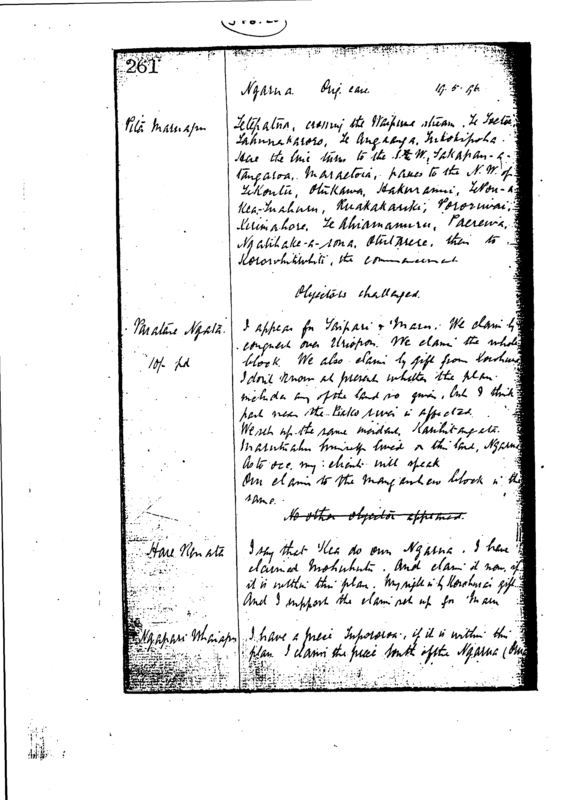 261
Ngarua Orig. case 19.5.96
Pita Maruapu
Tetepatua, crossing the Waipuna stream, Te Toetoe
Takunakaroro, Te Angaanga, Tukokipoha
Here the line turns to the S.W, Takapau-a-
tangaroa, Maraetoia, passes to the N.W. of
TeKoutu, Otukawa, Hakuranui, TePou-a-
Kea-Tuahuru, Ruakakariki, Pororuwai,
Kirimahore, Te Ahiamamuru, Paerewa,
Ngatihake-a-rona, then to
Korowhitiwhiti, the commencement
Objectors challenged.
Paratene Ngata
10/- pd
I appear for Taipari & Maru. We claim by
conquest over Uriopou. We claim the whole
block. We also claim by gift from
I don't know at present whether the plan
includes any of the land so given, but I think
part near the Piako river is affected.
We set up the same incident,
Marutuahu himself lived on this land, Ngarua
As to occ. my clients will speak
Our claim to the Mangawhero block is the
same.
No other objector appeared.
Hare Renata
I say that Kea do own Ngarua. I have
claimed Mohuhutu. And claim it now, if
it is within this plan. My right is by Korohura's gift
And I support the claim set up for Maru
Ngapari Whaiapu
I have a piece if it is within this
plan I claim the piece south of the Ngarua